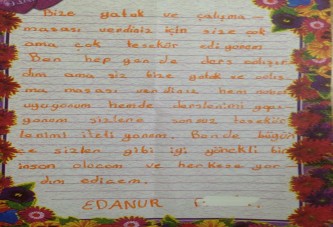 Bize yatak ve çalışma
masası verdiniz için size çok
ama çok teşekür ediyorum
Ben hep yerde ders çalışır
dım ama siz bize yatak ve çalış
ma masası verdiniz hem rahat
uyuyorum hemde derslerimi yapı
yorum sizlere sonsuz teşekür
lerimi iletiyorum. Bende büyün
ce sizler gibi iyi yürekli bir
insan olucam ve herkeze yar
dım edicem.
EDANUR